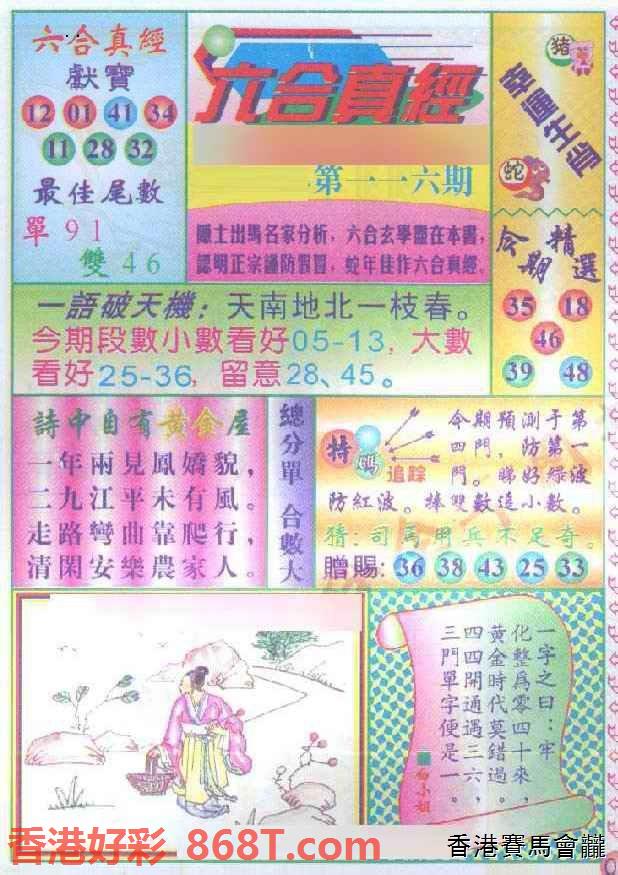 六合真經
獻寶
12 01 41 34
11 28 32
最佳尾數
單 9 1
雙 4 6
六合真經
第一一六期
隱士出馬名家分析，六合玄學盡在本書，
認明正宗謹防假冒，蛇年佳作六合真經。
豬
蛇
今期
精選
35 18
46
39 48
一語破天機：天南地北一枝春。
今期段數小數看好05-13，大數
看好25-36，留意28、45。
詩中自有黃金屋
一年兩見鳳嬌貌，
二九江平未有風。
走路彎曲靠爬行，
清閑安樂農家人。
總分單 合數大
特碼
追踪
今期預測于第
四門，防第一
門。睇好綠波
防紅波。捧雙數追小數。
猜：司馬用兵不足奇。
贈賜: 36 38 43 25 33
一字之曰：牢
化整爲零四十來，
黃金時代莫錯過。
四四開通遇三六，
三門單字便是一。
白小姐
香港好彩 868T.com
香港賽馬會